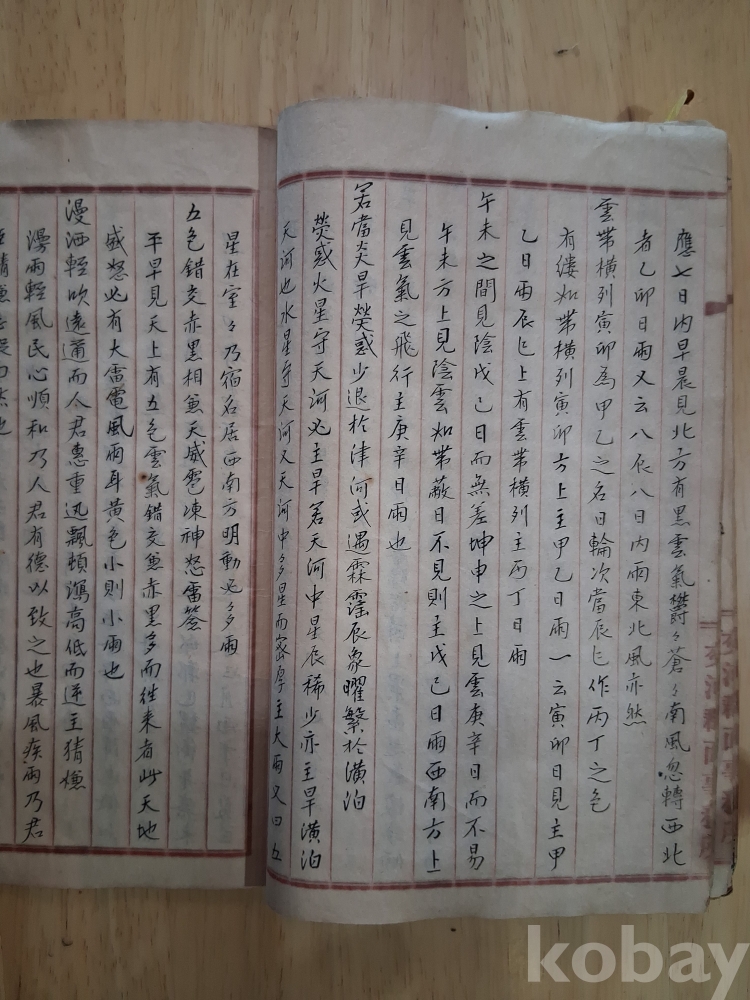 應七日内早晨見北方有黑雲氣鬱〻蒼〻南風忽轉西北
者乙卯日雨又云八辰八日内雨東北風亦然
雲带橫列寅卯為甲乙之名日輪次當辰巳作丙丁之色
有縷如带橫列寅卯方上主甲乙日雨一云寅卯日見主甲
乙日雨辰巳上有雲带橫列主丙丁日雨
午未之間見陰戊己日而無差坤申之上見雲庚辛日而不易
午未方上見陰雲如带蔽日不見則主戊己日雨西南方上
見雲氣之飛行主庚辛日雨也
若當炎旱熒惑少退於津河或遇霖霪辰象曜繁於潢泊
熒惑火星守天河必主旱若天河中星辰稀少亦主旱潢泊
天河也水星守天河又天河中多星而密厚主大雨又曰五
星在室〻乃宿名居西南方明動必多雨
五色錯交赤黑相兼天威雹凍神怒雷荅
平旱見天上有五色雲氣錯交兼赤黑多而往来者此天地
威怒必有大雷電風雨耳黄色小則小雨也
漫洒輕吹遠邇而人君惠重迅飄頓瀉高低而逆主猜慊
漫雨輕風民心順和乃人君有德以致之也暴風疾雨乃君
kobay